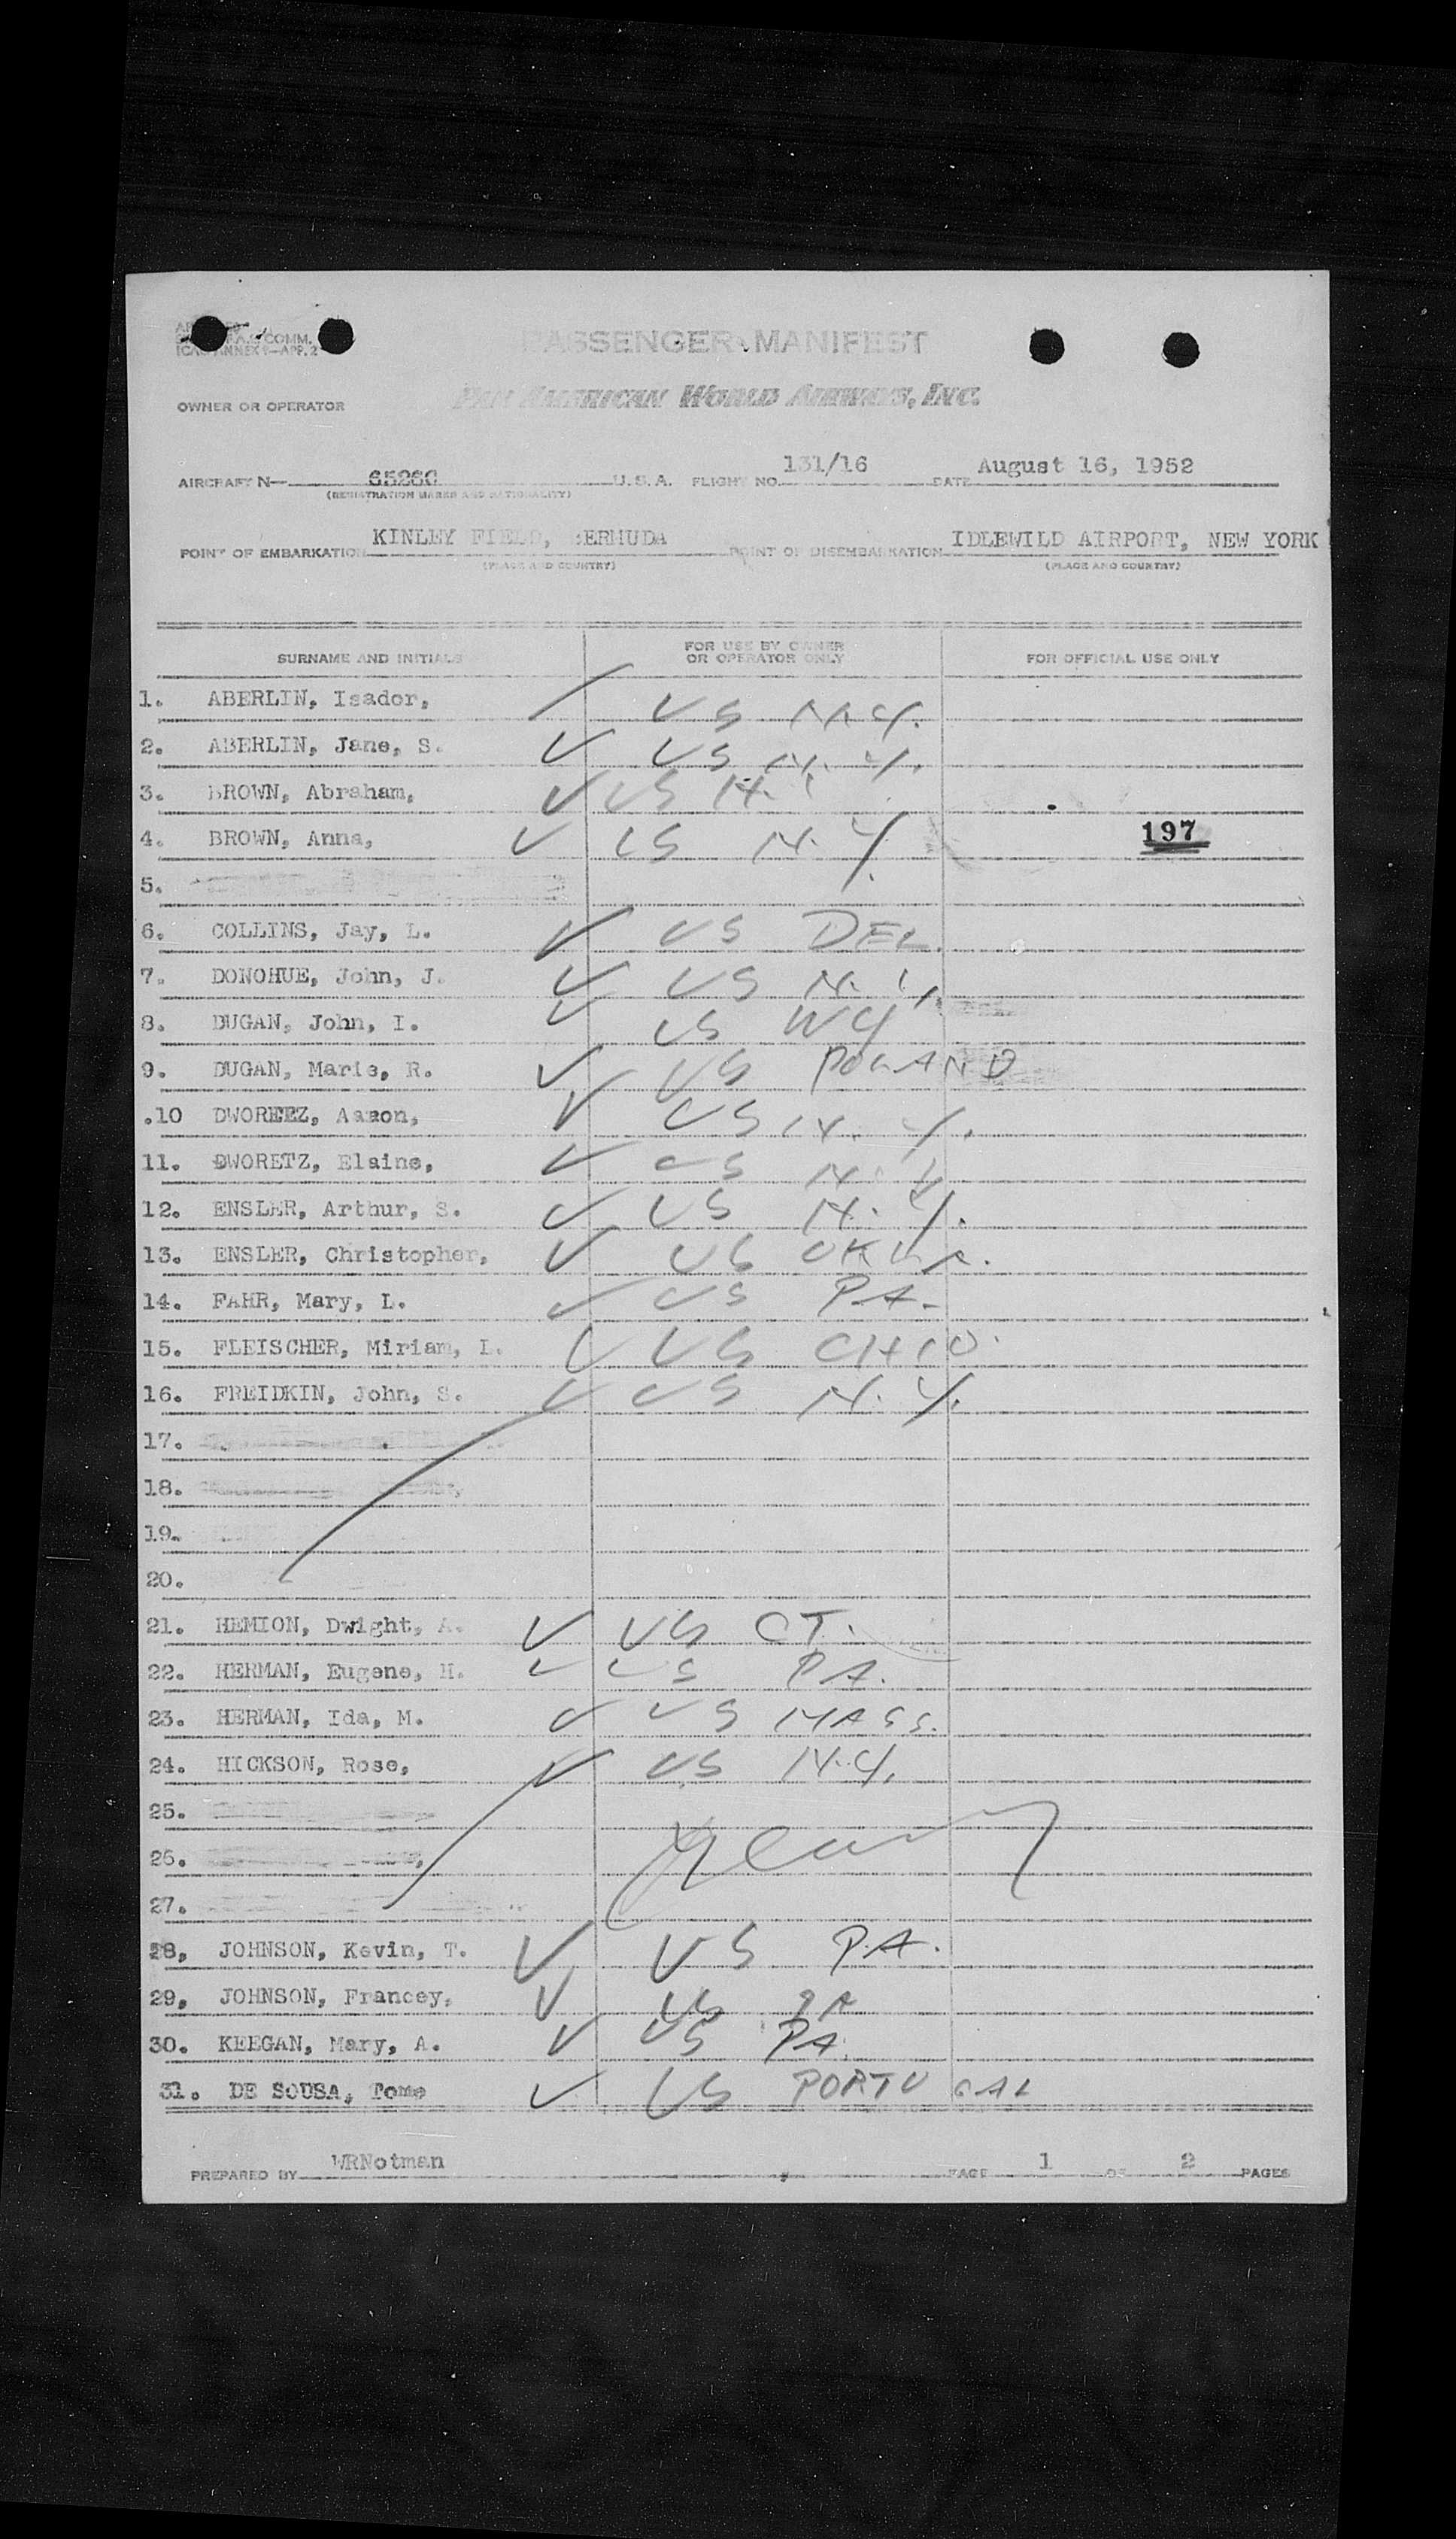 COMM.
ICAO ANNEX 9—APP. 2
PASSENGER MANIFEST
OWNER OR OPERATOR PAN AMERICAN WORLD AIRWAYS, INC.
AIRCRAFT N— U.S.A. FLIGHT NO. 131/16 DATE August 16, 1952
(REGISTRATION MARKS AND NATIONALITY)
POINT OF EMBARKATION KINLEY FIELD, BERMUDA POINT OF DISEMBARKATION IDLEWILD AIRPORT, NEW YORK
(PLACE AND COUNTRY) (PLACE AND COUNTRY)
SURNAME AND INITIALS FOR USE BY OWNER OR OPERATOR ONLY FOR OFFICIAL USE ONLY
1. ABERLIN, Isador, US N.Y.
2. ABERLIN, Jane, S. US N.Y.
3. BROWN, Abraham, US
4. BROWN, Anna, US N.Y. 197
5.
6. COLLINS, Jay, L. US DEL.
7. DONOHUE, John, J. US N.Y.
8. DUGAN, John, I. US NY
9. DUGAN, Marie, R. US POLAND
.10 Aaron, US N.Y.
11. DWORETZ, Elaine, US N.Y.
12. ENSLER, Arthur, S. US N.Y.
13. ENSLER, Christopher, US OKLA.
14. FAHR, Mary, L. US PA.
15. FLEISCHER, Miriam, L. US OHIO
16. FREIDKIN, John, S. US N.Y.
17.
18.
19.
20.
21. HEMION, Dwight, A. US CT.
22. HERMAN, Eugene, H. US PA.
23. HERMAN, Ida, M. US MASS.
24. HICKSON, Rose, US N.Y.
25.
26.
27.
28, JOHNSON, Kevin, T. US PA.
29, JOHNSON, Francey, US PA
30. KEEGAN, Mary, A. US PA.
31. DE SOUSA, Tome US PORTUGAL
PREPARED BY WRNotman PAGE 1 OF 2 PAGES